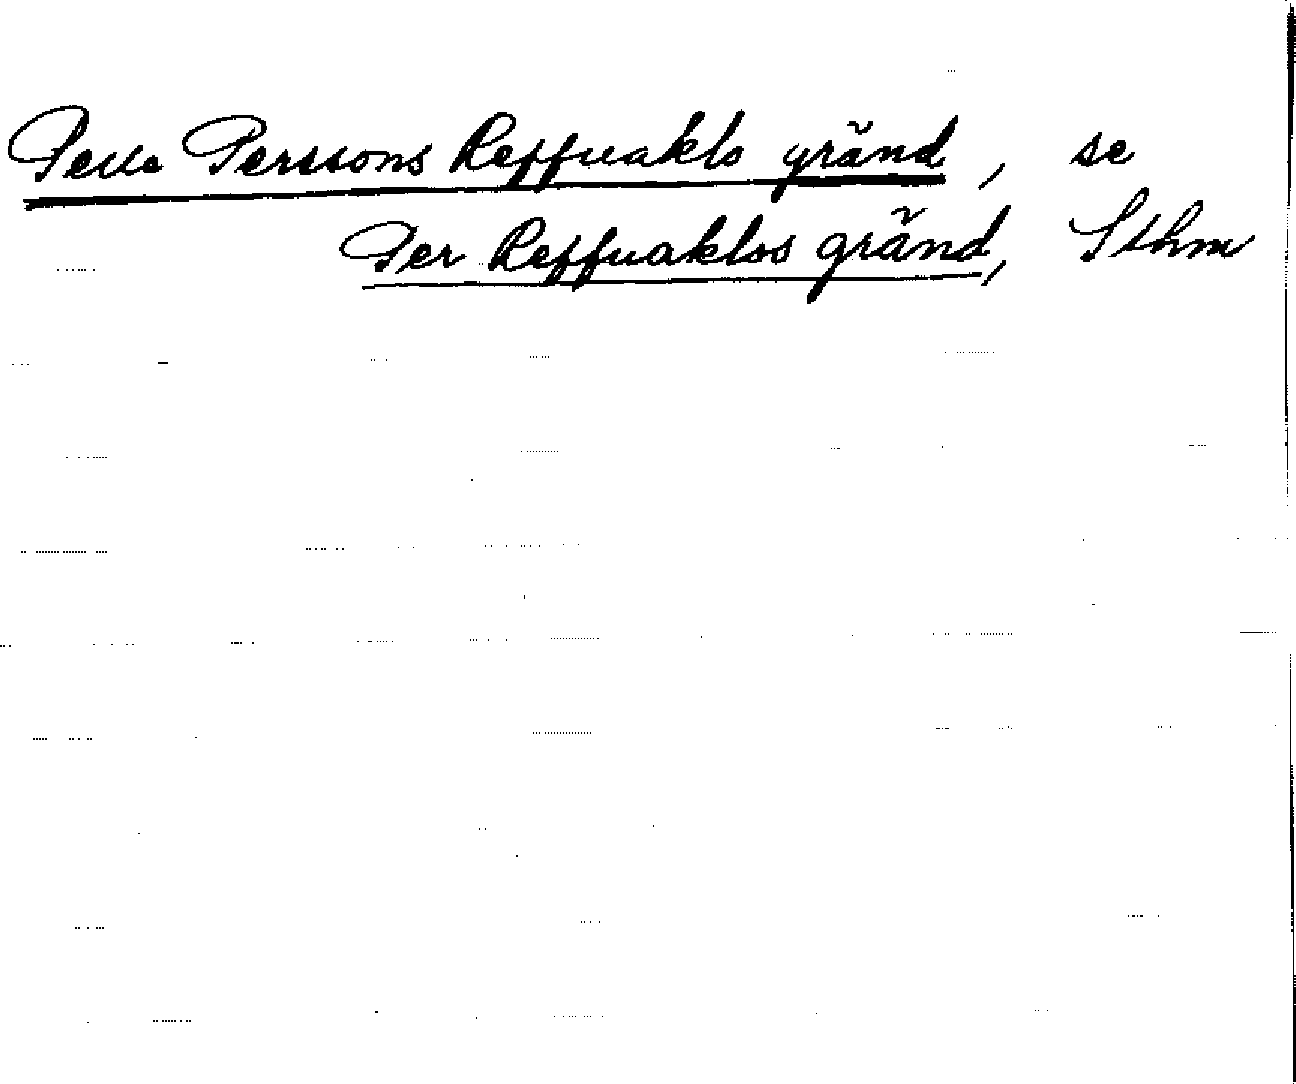 Pelle Perssons Reffuaklo gränd, se
Per Reffuaklos gränd, Sthm